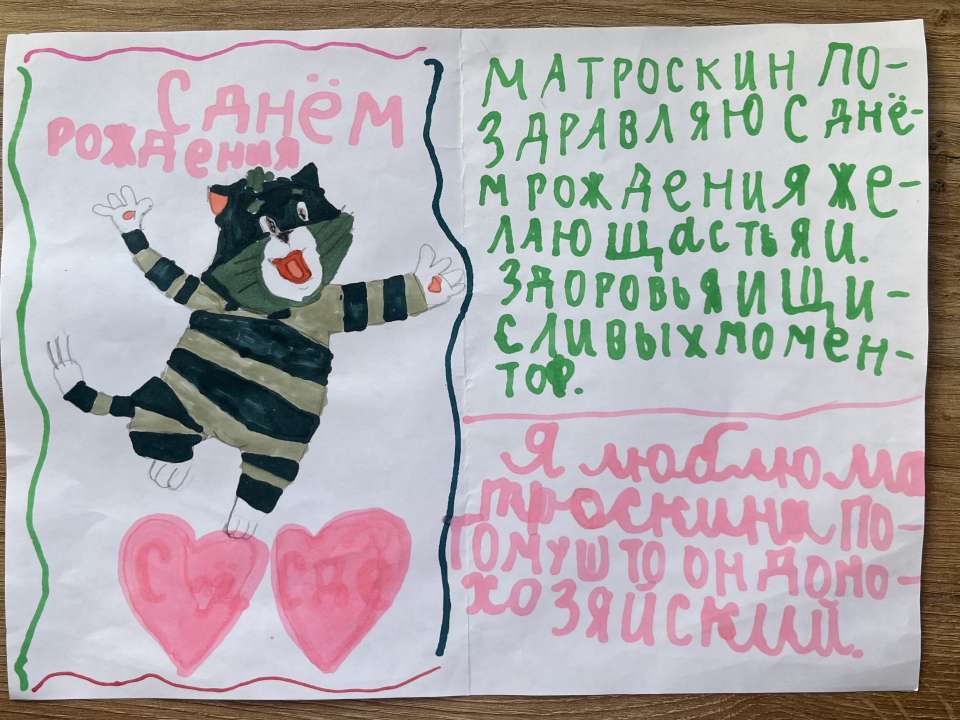 С ДНЁМ
РОЖДЕНИЯ
МАТРОСКИН ПО-
ЗДРАВЛЯЮ С ДНЁ-
М РОЖДЕНИЯ ЖЕ-
ЛАЮ ЩАСТЬЯ И.
ЗДОРОВЬЯ И ЩИ-
СЛИВЫХ МОМЕН-
ТОФ.
Я люблю ма
троскина ПО-
ТОМУШТО ОН ДОМО-
ХОЗЯЙСКИЙ.